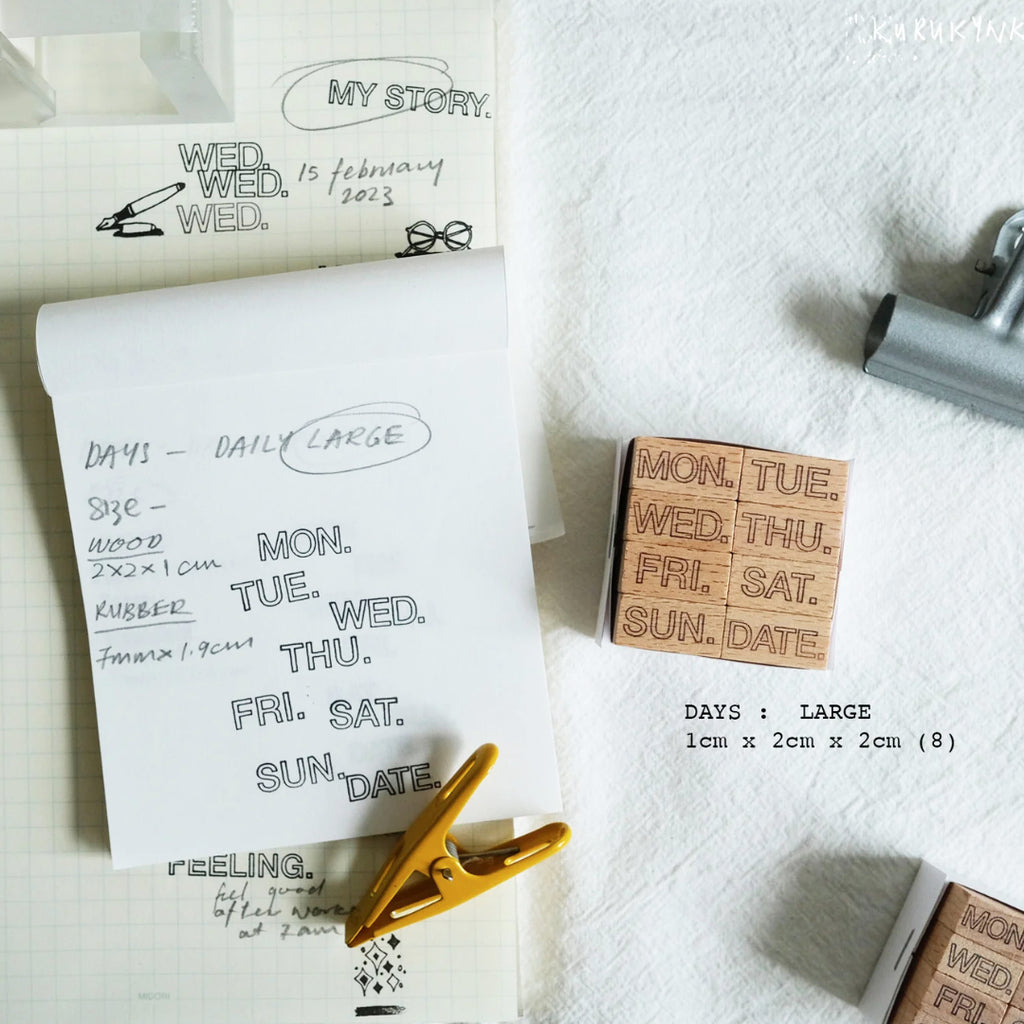 KURUKYNK
MY STORY.
WED.
WED.
WED.
15 february
2023
DAYS - DAILY LARGE
SIZE -
WOOD
2x2x1 cm
RUBBER
7mm x 1.9cm
MON.
TUE.
WED.
THU.
FRI. SAT.
SUN. DATE.
FEELING.
feel good
after work
at 7am
MIDORI
MON. TUE.
WED. THU.
FRI. SAT.
SUN. DATE.
DAYS : LARGE
1cm x 2cm x 2cm (8)
MON
WED.
FRI.